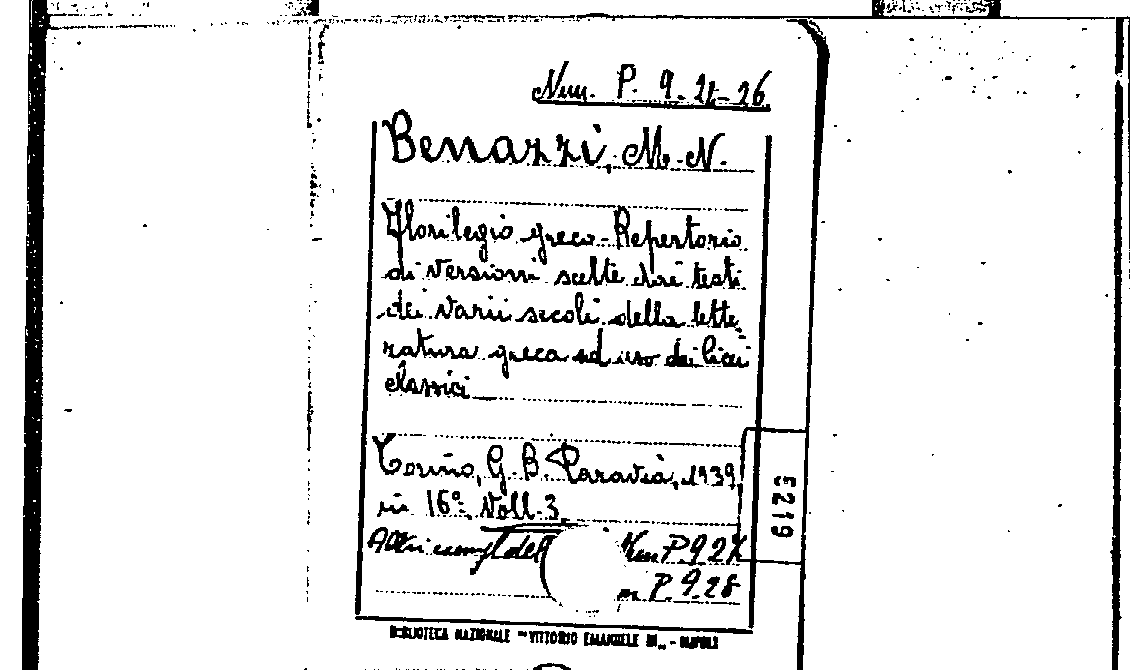 Num. P. 9. 21-26
Benazzi, M. N.
Florilegio greco - Repertorio
di versioni scelte dai testi
dei varii secoli della lette
ratura greca ad uso dei licei
classici
Torino, G. B. Paravia, 1939
in 16°. Voll. 3.
Altri del Num P. 9 27
P. 9. 28
5219
BIBLIOTECA NAZIONALE "VITTORIO EMANUELE III" - NAPOLI